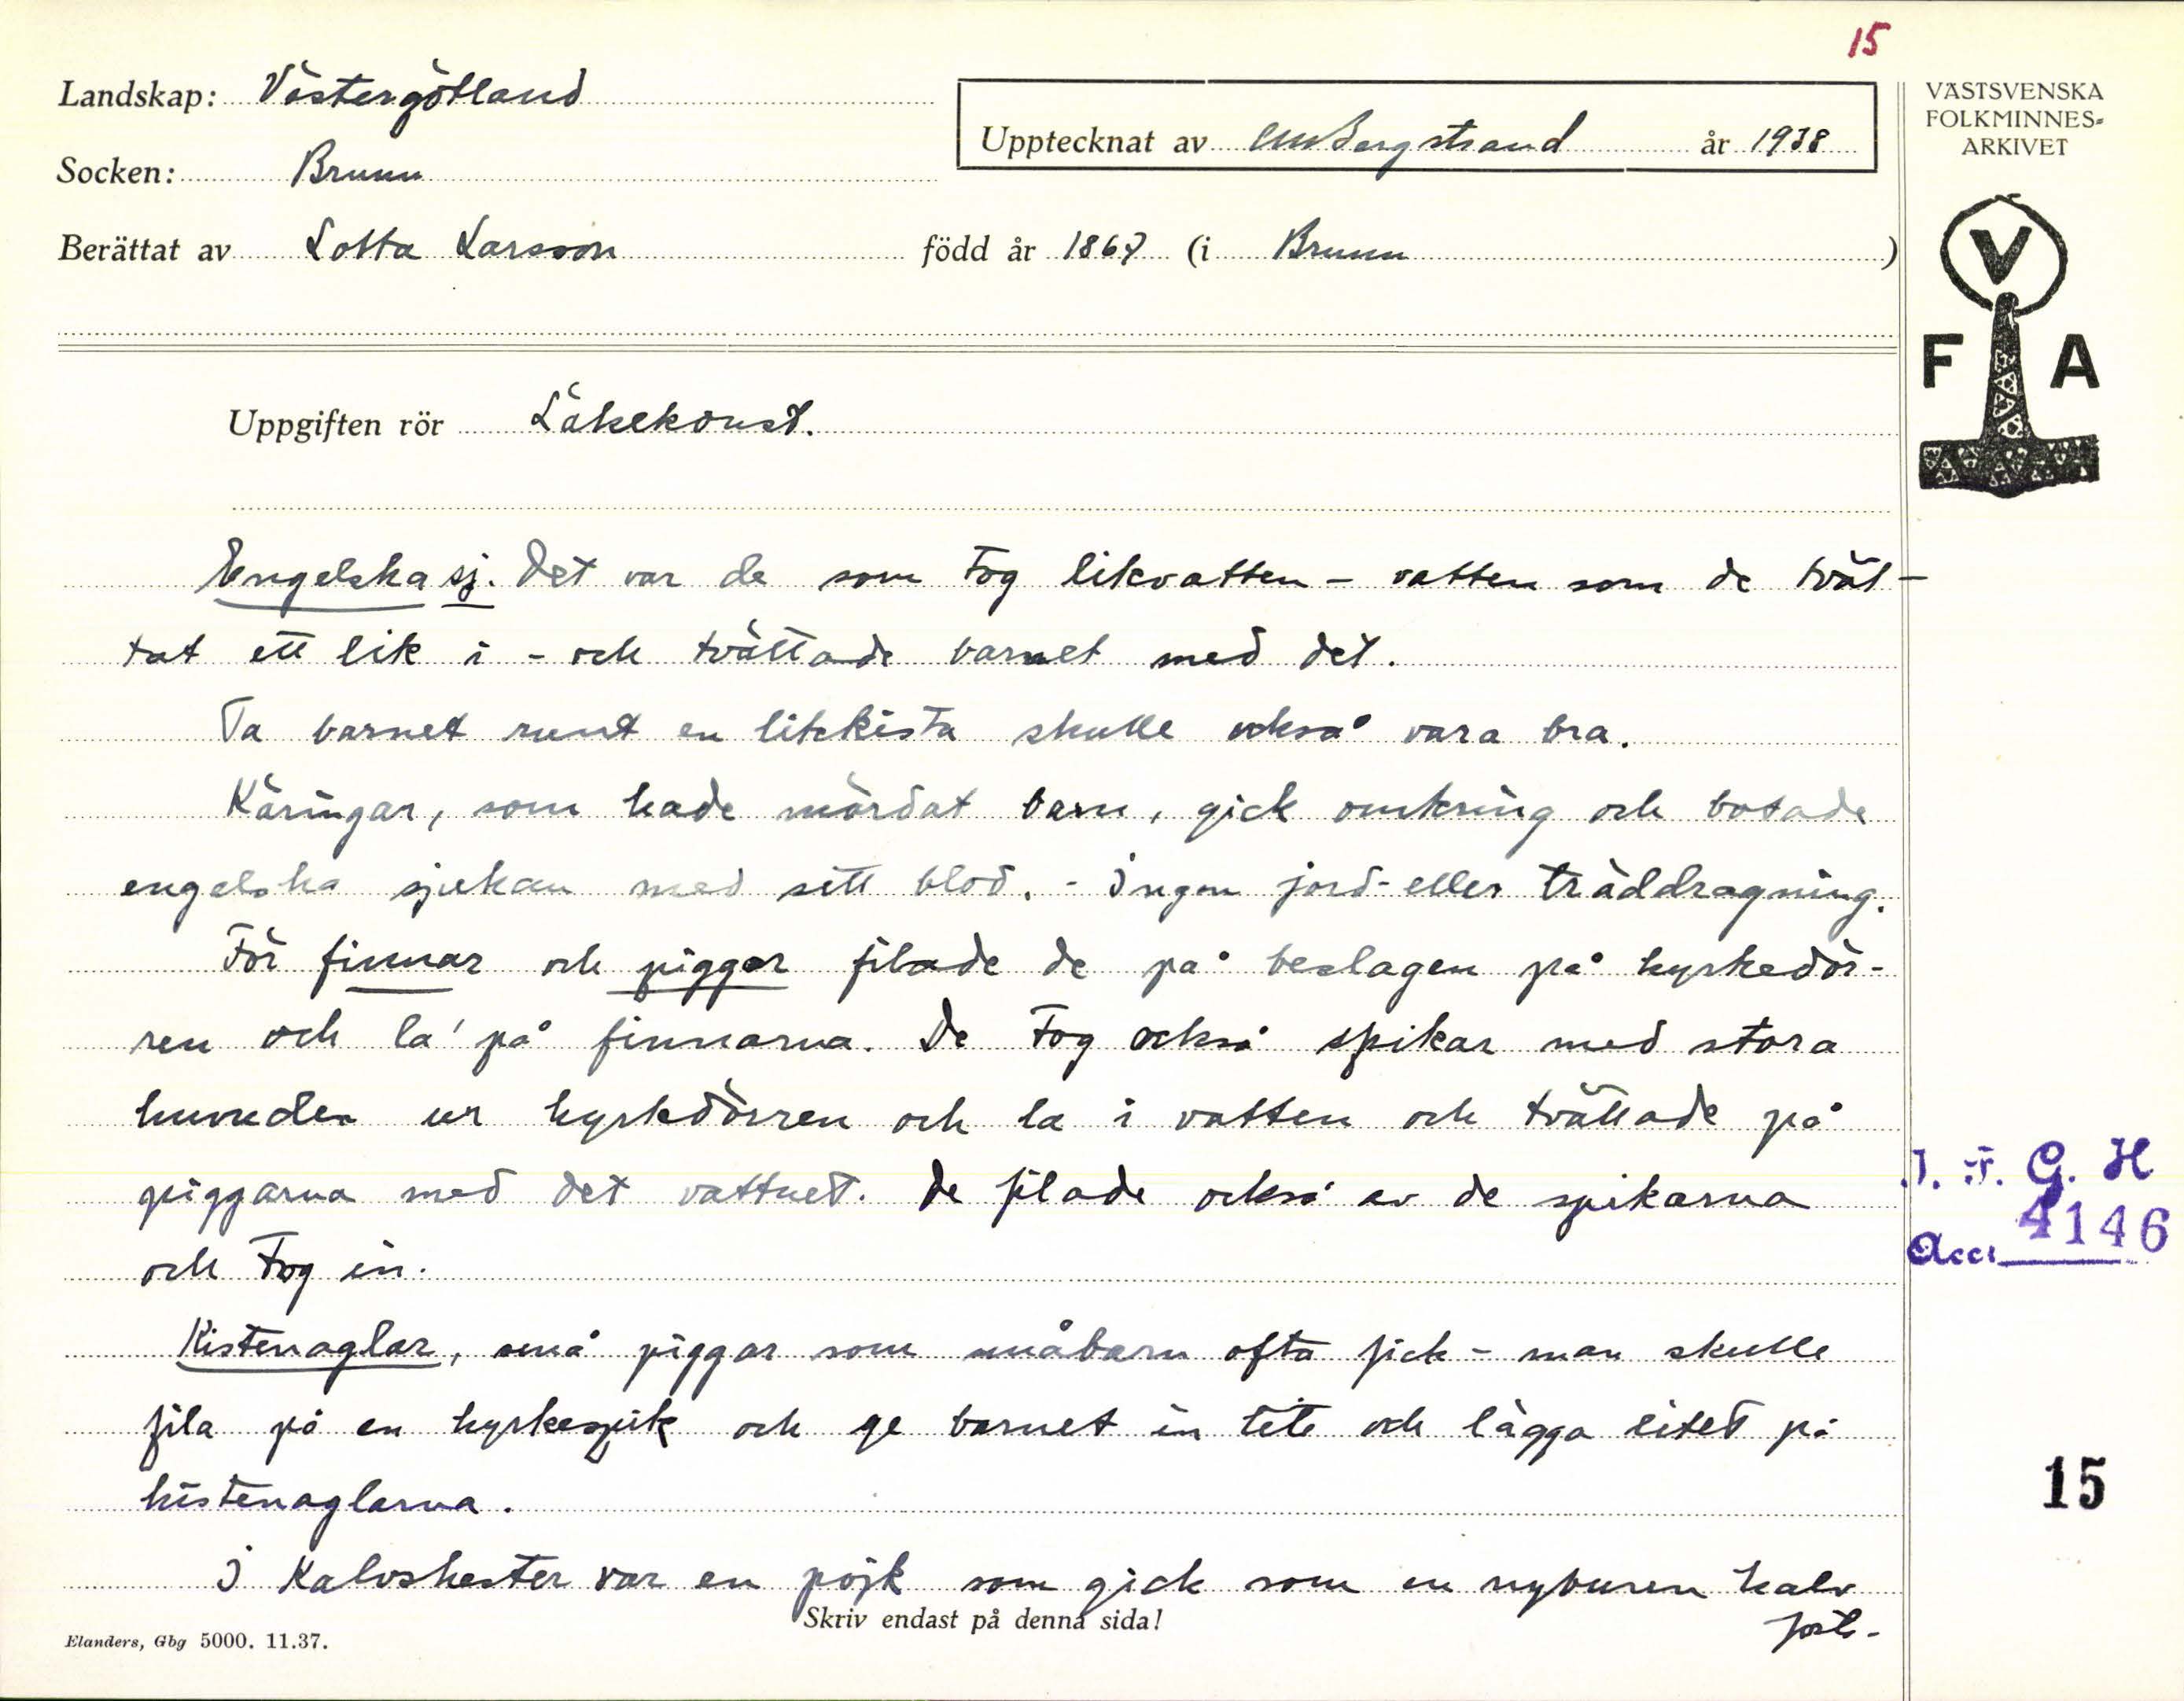 15
Landskap: Västergötland
Upptecknat av CM Bergstrand år 1938
VÄSTSVENSKA
FOLKMINNES-
ARKIVET
Socken: Brunn
Berättat av Lotta Larsson född år 1867 (i Brunn)
V
F A
Uppgiften rör Läkekonst.
Engelska sj. Det var de som tog likvatten - vatten som de tvät-
tat ett lik i - och tvättade barnet med det.
Ta barnet runt en likkista skulle också vara bra.
Käringar, som hade mördat barn, gick omkring och botade
engelska sjukan med sitt blod. - Ingen jord- eller träddragning.
För finnar och piggar filade de på beslagen på kyrkedör-
ren och la' på finnarna. De tog också spikar med stora
huvuden ur kyrkdörren och la i vatten och tvättade på
piggarna med det vattnet. De filade också av de spikarna
och tog in.
Kistenaglar, små piggar som småbarn ofta fick - man skulle
fila på en kyrkespik och ge barnet in lite och lägga litet på
kistenaglarna.
I Kalvshester var en pojk som gick som en nyburen kalv
forts.
Skriv endast på denna sida!
Elanders, Gbg 5000. 11.37.
I. F. G. H
Acc. 4146
15